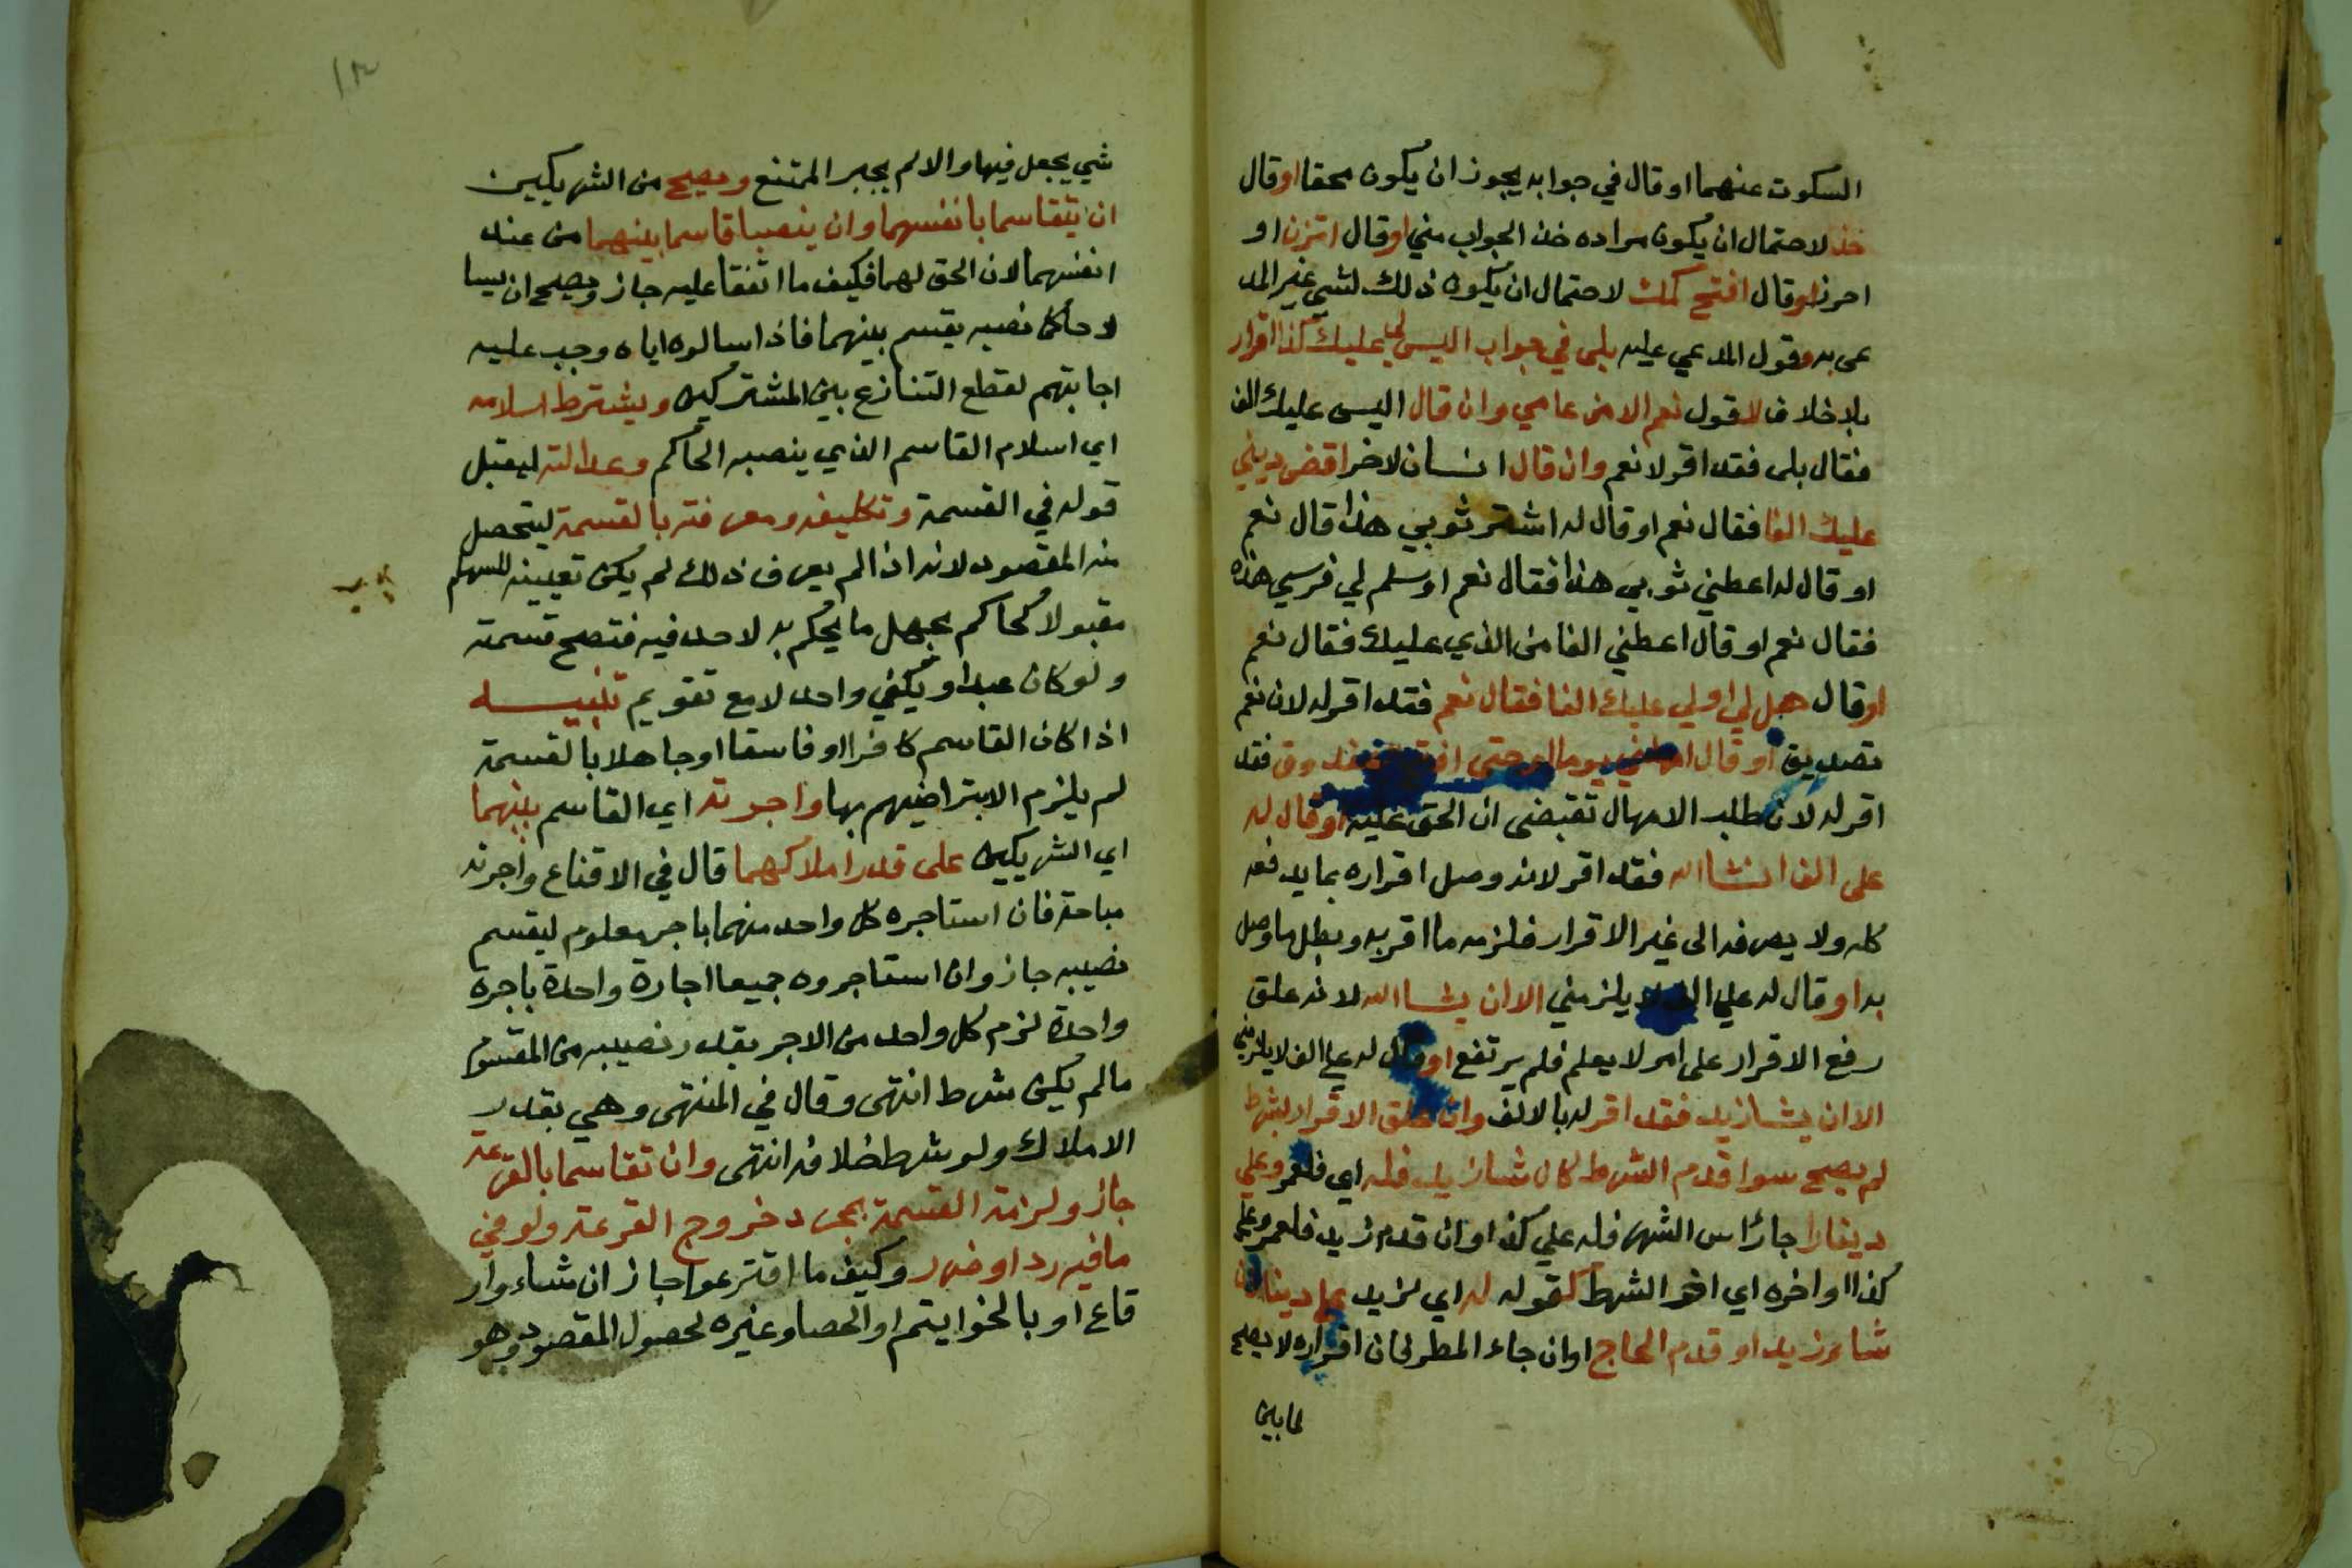 السكوت عنهما او قال في جوابه يجوز ان يكون محقا او قال
خذ لاحتمال ان يكون مراده خذ الجواب مني او قال اتزن او
احرز او قال افتح كمك لاحتمال ان يكون ذلك لشي غير المد
عى به وقول المدعي عليه بلى في جواب اليس لي عليك كذا اقرار
بلا خلاف لا قول نعم الا من عامي وان قال اليس عليك الف
فقال بلى فقد اقر لا نعم وان قال انسان لاخر اقض ديني
عليك الفا فقال نعم او قال له اشتر ثوبي هذا قال نعم
او قال له اعطني ثوبي هذا فقال نعم او سلم لي فرسي هذه
فقال نعم او قال اعطني الفا من الذي عليك فقال نعم
او قال هل لي او لي عليك الفا فقال نعم فقد اقر له لان نعم
تصديق او قال امهلني يوما او حتى افتح الصندوق فقد
اقر له لان طلب الامهال تقبضى ان الحق عليه او قال له
على الف انشا الله فقد اقر لانه وصل اقراره بما يدفعه
كله ولا يصرفه الى غير الاقرار فلزمه ما اقر به وبطل ما وصل
به او قال له علي الف لا يلزمني الا ان يشا الله لانه علق
رفع الاقرار على امر لا يعلم فلم يرتفع او قال له علي الف لا يلزمني
الا ان يشا زيد فقد اقر له بالالف وان علق الاقرار بشرط
لم يصح سوا قدم الشرط كان شا زيد فله اي فلعمرو علي
دينارا جا راس الشهر فله علي كذا او ان قدم زيد فلعمرو علي
كذا او اخره اي اخر الشرط كقوله له اي لزيد علي دينار ان
شاء زيد او قدم الحاج او ان جاء المطر كان اقراره لا يصح
لما بين
١٢
شي يجعل فيها والا لم يجبر الممتنع ويصح من الشريكين
ان يتقاسما بانفسهما وان ينصبا قاسما بينهما من عند
انفسهما لان الحق لهما فكيف ما اتفقا عليه جاز ويصح ان يسا
لا حاكما نصبه يقسم بينهما فاذا سالوه اياه وجب عليه
اجابتهم لقطع التنازع بين المشتركين ويشترط اسلامه
اي اسلام القاسم الذي ينصبه الحاكم وعدالته ليقبل
قوله في القسمة وتكليفه ومعرفته بالقسمة ليتحصل
منه المقصود لانه اذا لم يعرف ذلك لم يكن تعيينه للسهام
مقبولا كحاكم بجهل ما يحكم به لا حد فيه فتصح قسمته
ولو كان عبدا ويكفي واحد لا مع تقويم تنبيه
اذا كان القاسم كافرا او فاسقا او جاهلا بالقسمة
لم يلزم الا بتراضيهم بها واجرته اي القاسم بينهما
اي الشريكين على قدر املاكهما قال في الاقناع واجرته
مباحة فان استاجره كل واحد منهما باجر معلوم ليقسم
نصيبه جاز وان استاجروه جميعا اجارة واحدة باجرة
واحدة لزم كل واحد من الاجر بقدر نصيبه من المقسوم
مالم يكن شرط انتهى وقال في المنتهى وهي بقدر
الاملاك ولو شرط خلافه انتهى وان تقاسما بالقرعة
جاز ولزمة القسمة بمجرد خروج القرعة ولو في
ما فيه رد او ضرر وكيف ما اقترعوا جاز ان شاء وا ر
قاع او بالخواتيم او الحصا وغيره لحصول المقصود وهو